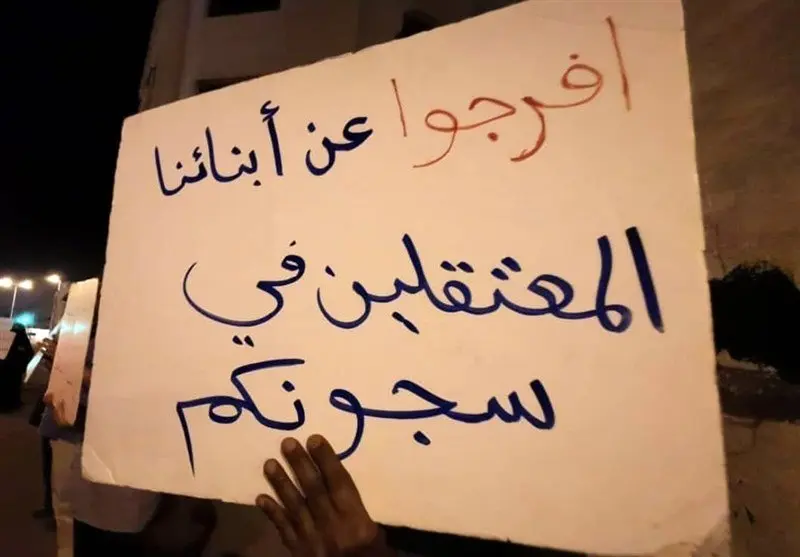 افرجوا عن أبنائنا
المعتقلين في
سجونكم